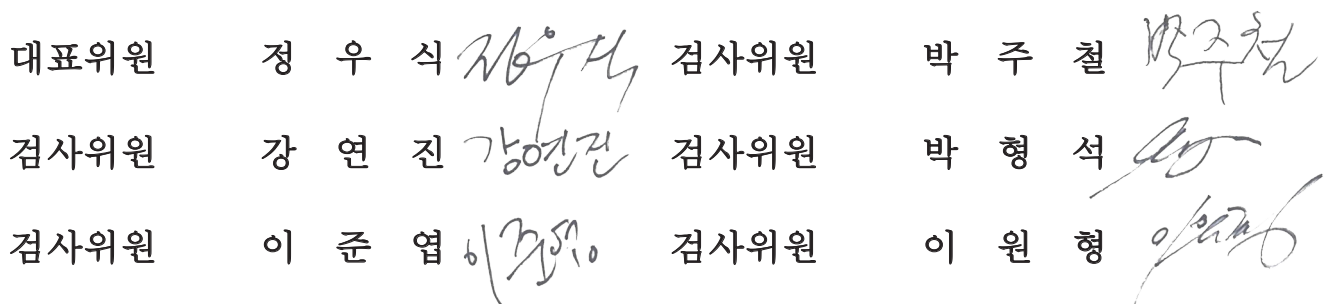 대표위원 정 우 식 정우식 검사위원 박 주 철 박주철
검사위원 강 연 진 강연진 검사위원 박 형 석
검사위원 이 준 엽 검사위원 이 원 형